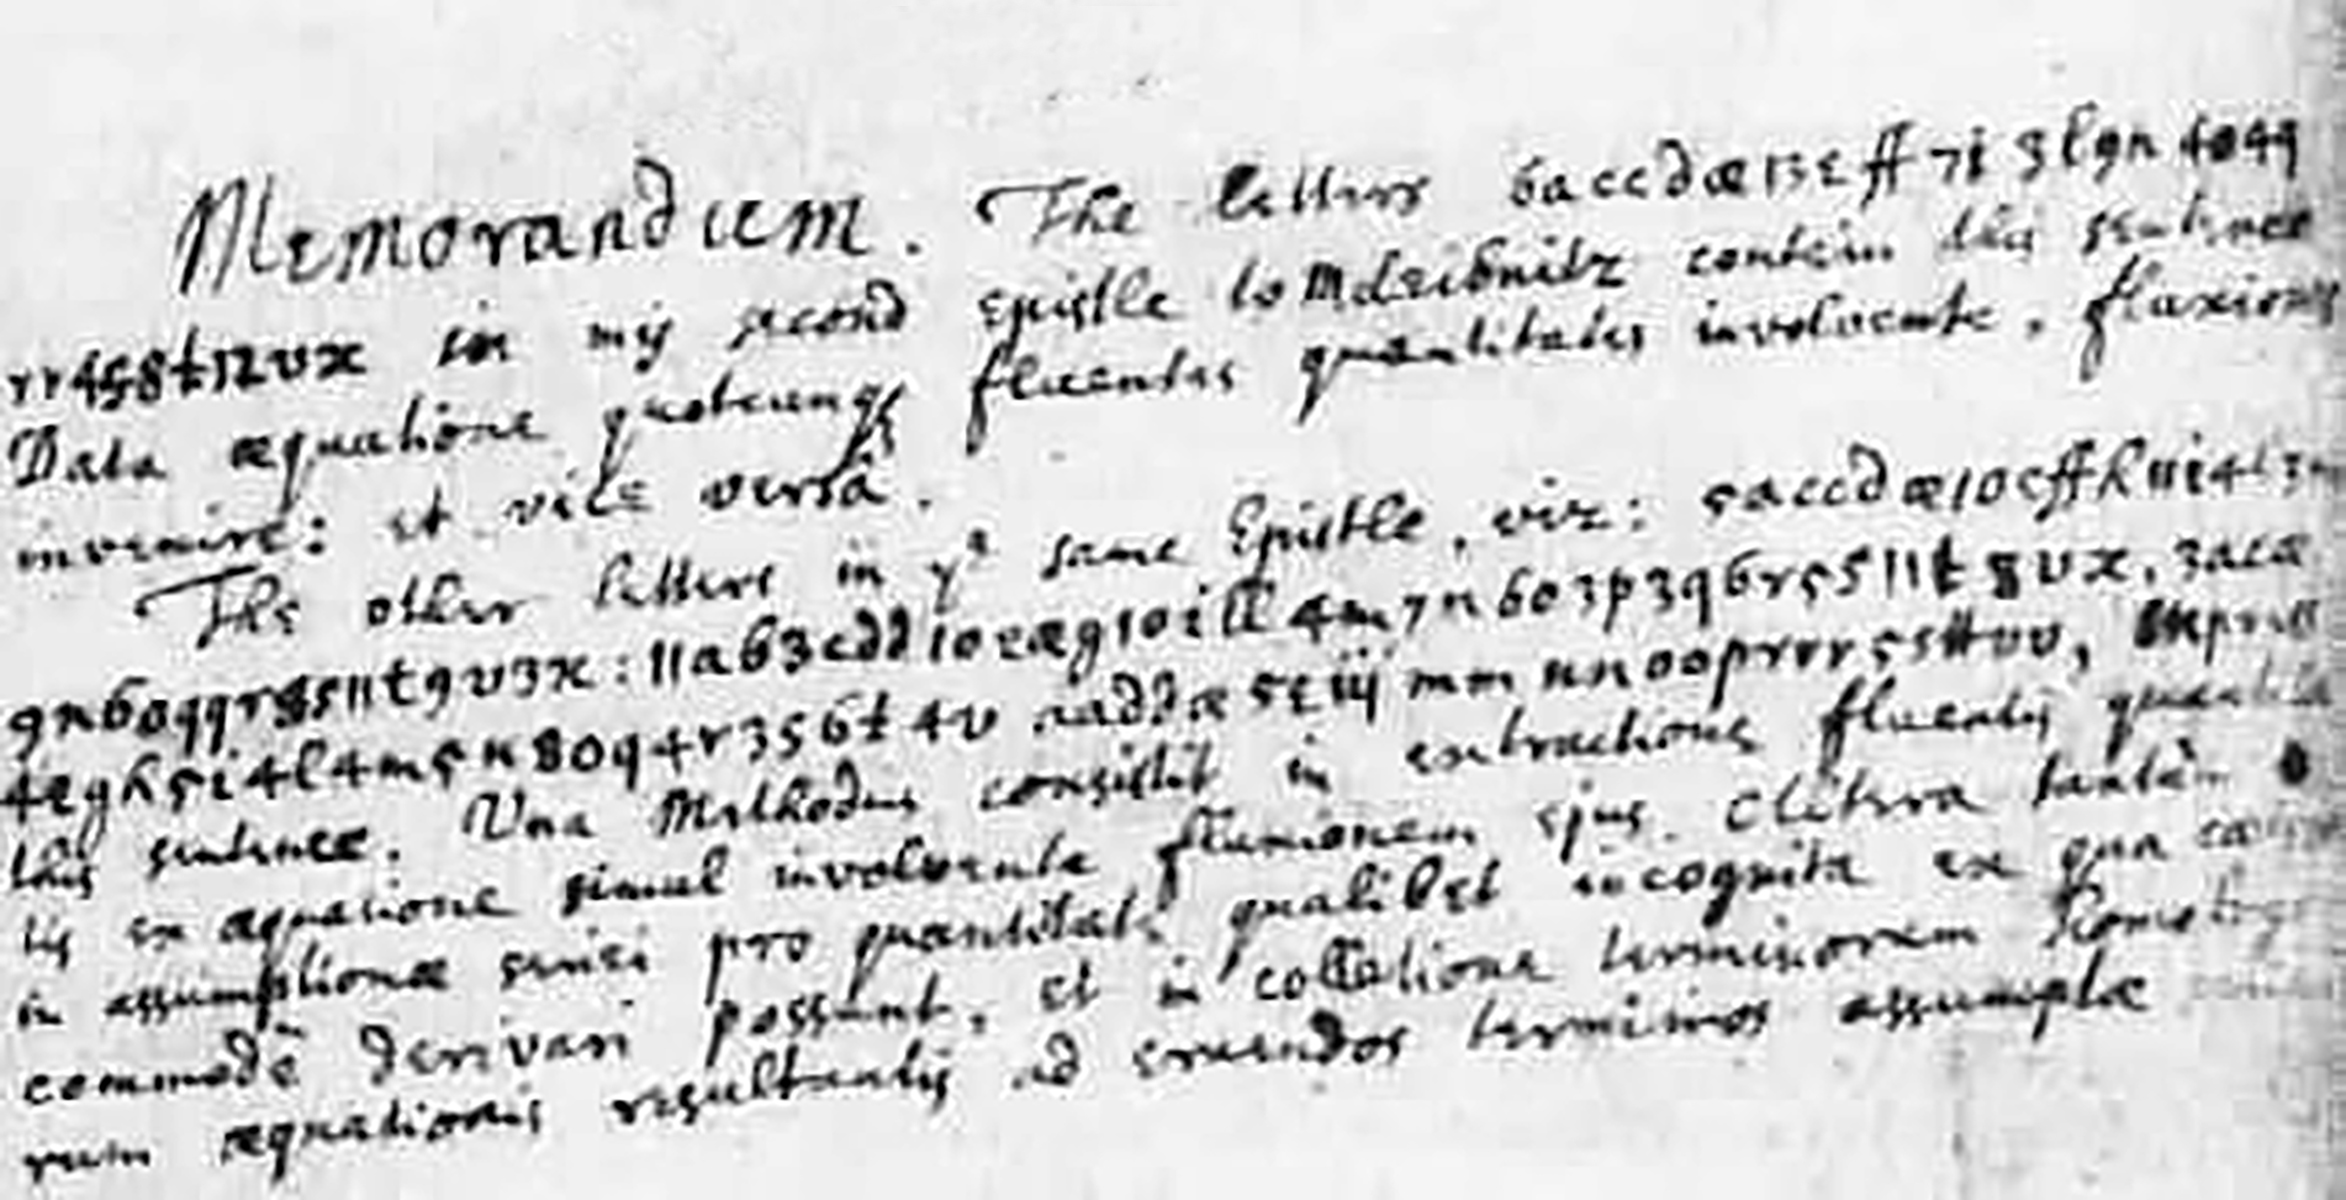 Memorandum. The letters 6accdæ13eff7i3l9n4o4q
rr4s8t12vx in my second epistle to M. Leibnitz contein this sentence
Data æquatione quotcunqȝ fluentes quantitates involvente, fluxiones
invenire: et vice versâ.
The other letters in yᵉ same Epistle, viz: 5accdæ10effh11i4l3m
9n6oqqr8s11t9v3x: 11ab3cdd10eæg10ill4m7n6o3p3q6r5s11t8vx, 3acæ
4egh5i4l4m5n8oq4r3s6t4v aaddæ5eiijmmnnooprrrssttvv, express
this sentence. Una Methodus consistit in extractione fluentis quantita
tis ex æquatione simul involvente fluxionem ejus. Altera tantùm
in assumptione seriei pro quantitate qualibet incognita ex qua cætera
commodè derivari possunt, et in collatione terminorum homologo
rum æquationis resultantis ad eruendos terminos assumptæ